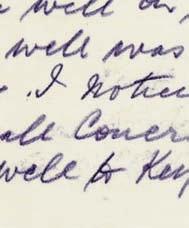 well as
well was
. I notice
all Concer
well to Key